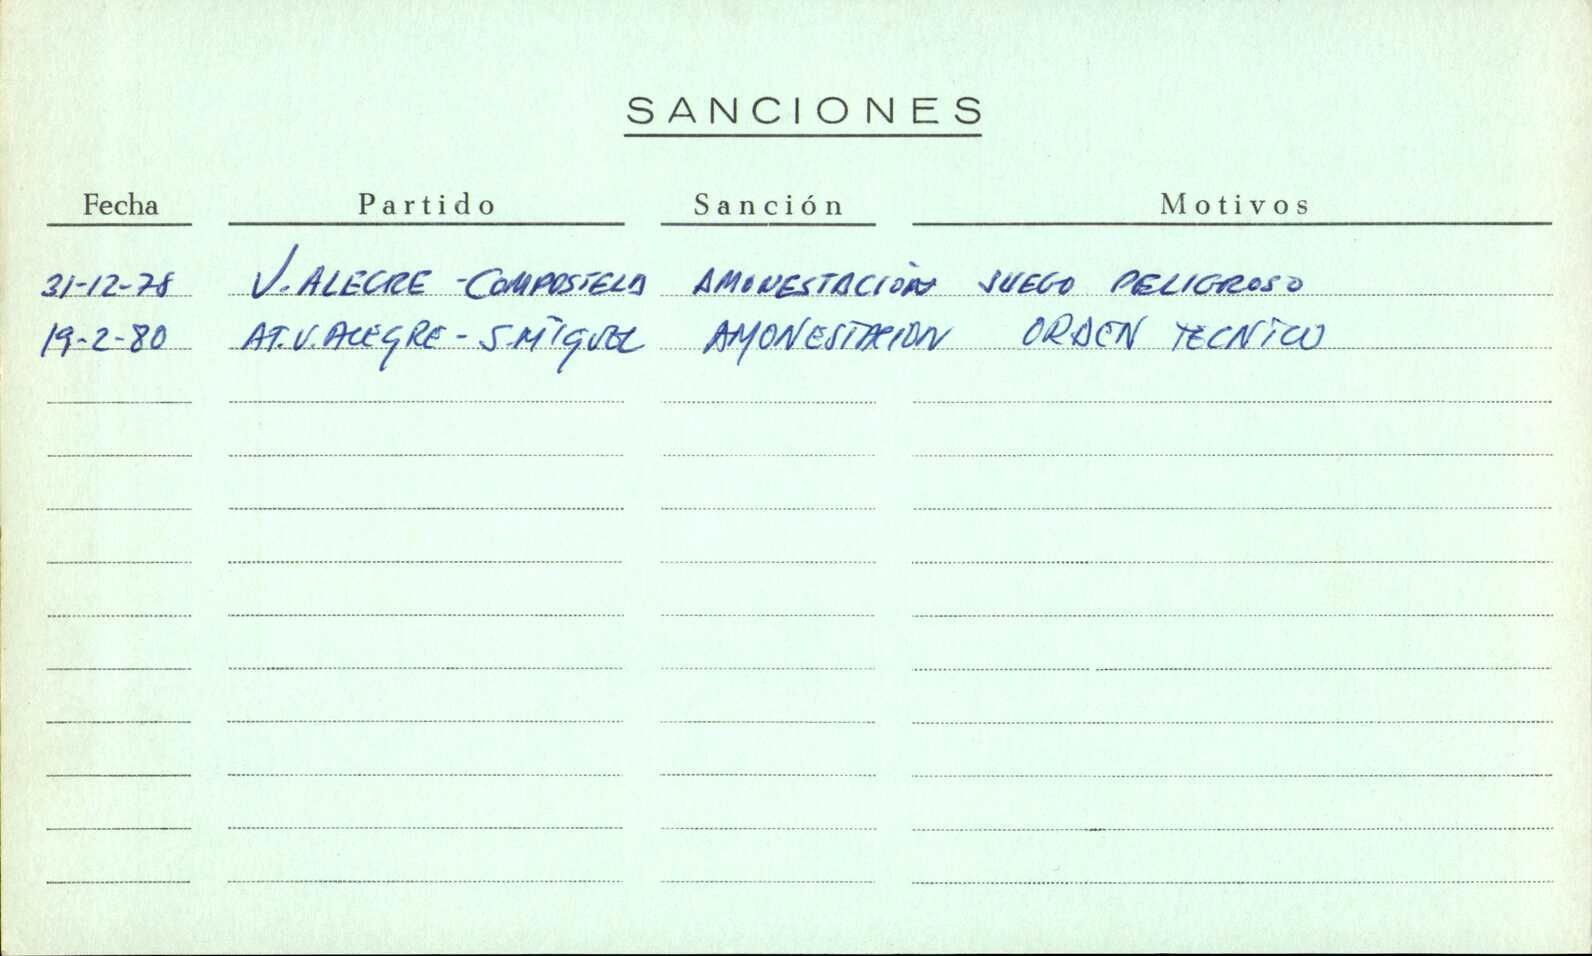 SANCIONES
Fecha Partido Sanción Motivos
31-12-78 V. ALEGRE - COMPOSTELA AMONESTACIÓN JUEGO PELIGROSO
19-2-80 AT. V. ALEGRE - S. MIGUEL AMONESTACION ORDEN TECNICO